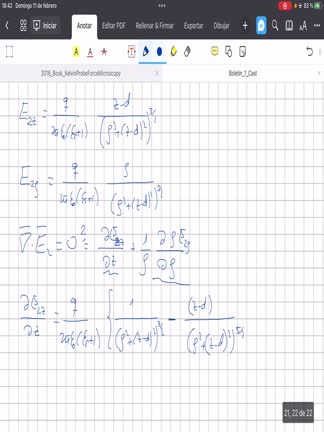 18:42 Domingo 11 de febrero
Iniciar Anotar Editar PDF Rellenar & Firmar Exportar Dibujar
2018_Book_KelvinProbeForceMicroscopy Boletin_1_Cast
E_{2z} = q / (2πε₀(ε₁+1)) · (z-d) / (ρ²+(z-d)²)^{3/2}
E_{2ρ} = q / (2πε₀(ε₁+1)) · ρ / (ρ²+(z-d)²)^{3/2}
∇·E₂ = 0 = ∂E_{2z}/∂z + 1/ρ ∂ρE_{2ρ}/∂ρ
∂E_{2z}/∂z = q / (2πε₀(ε₁+1)) { 1 / (ρ²+(z-d)²)^{3/2} - (z-d) / (ρ²+(z-d)²)^{5/2}
21, 22 de 22